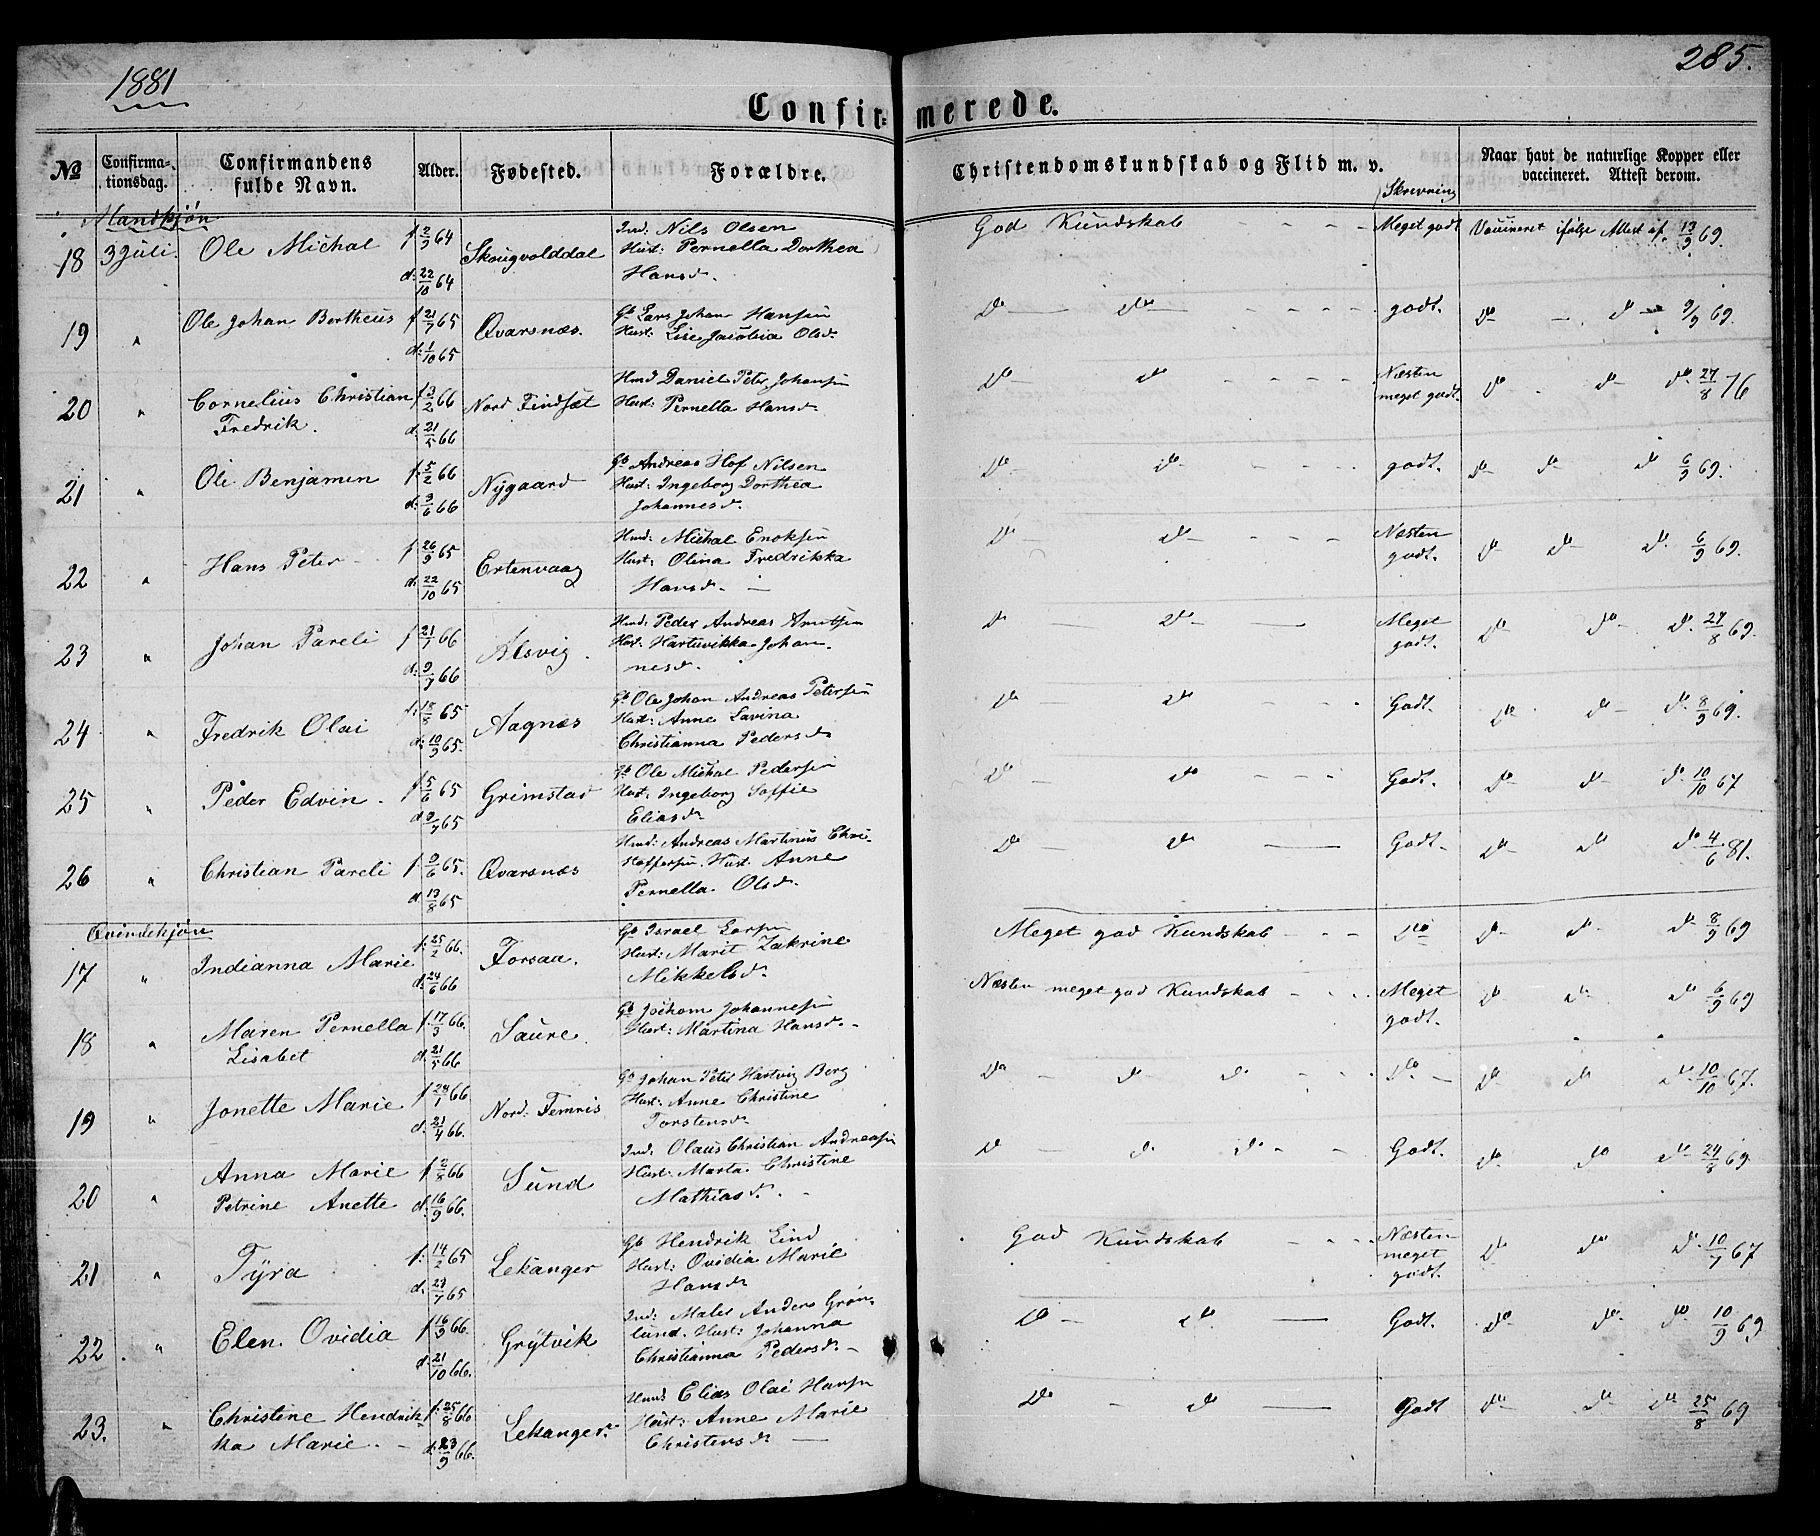 1881
285.
Confirmerede.
No
Confirmationsdag.
Confirmandens fulde Navn.
Alder.
Fødested.
Forældre.
Christendomskundskab og Flid m. v.
Skrevning
Naar havt de naturlige Kopper eller vaccineret. Attest derom.
Mandkjøn
18 3 Juli. Ole Michal f 2/9 64 Skougvolddal Ind. Nils Olsen God Kundskab - - - Meget godt Vaccineret ifølge Attest af 13/9 69.
d: 22/10 64 Hust: Pernella Dorthea
Hansd.
19 " Ole Johan Bertheus f 21/7 65 Qvarsnæs. Gb Lars Johan Hansen Do - Do - - - godt. Do - Do - 9/9 69.
d: 1/10 65 Hust: Lise Jacobia Olsd.
20 " Cornelius Christian f 3/2 66 Nord Findsæt Hmd Daniel Peter Johansen Do - Do - - - Næsten Do - Do Do 27/8 76
Fredrik. d: 21/5 66 Hust: Pernella Hansd. meget godt.
21 " Ole Benjamin f. 5/2 66 Nygaard Gb Andreas Hof Nilsen Do - Do - - - godt. Do Do Do 6/9 69.
d. 3/6 66 Hust: Ingeborg Dorthea
Johannesd.
22 " Hans Peter f 26/9 65 Ertenvaag Hmd: Michal Enoksen Do - Do - - - Næsten Do Do Do. 6/9 69.
d. 22/10 65 Hust: Olina Fredrikka godt.
Hansd. -
23 " Johan Pareli f 21/1 66 Alsvig. Hmd: Peder Andreas Arntsen Do - Do - Meget Do Do Do. 27/8 69.
d. 9/7 66 Hust. Hartvikka Johan- godt.
nesd.
24 " Fredrik Olai f. 18/8 65 Aagnæs Gb Ole Johan Andreas Petersen Do - Do - - . Godt. Do Do - Do. 8/9 69.
d: 10/9 65. Hust: Anne Lavina
Christianna Pedersd
25 " Peder Edvin. f 5/6 65 Grimstad Gb Ole Michal Pedersen Do - Do - - - Godt. Do - Do - Do. 10/10 67
d 9/7 65 Hust. Ingeborg Soffie
Eliasd.
26 " Christian Pareli f. 9/6 65. Qvarsnæs Hmd: Andreas Martinus Chri- Do - Do - Godt. Do - Do - Do 4/6 81.
d. 13/8 65 stoffersen, Hust. Anne
Pernella Olsd.
Qvindekjøn
17 " Indianna Marie f. 25/2 66. Forsaa. Gb Israel Larsen Meget god Kundskab - - - Do Do - Do - Do 8/9 69
d. 24/6 66 Hust: Marit Zakrine
Mikkelsd.
18 " Maren Pernella f. 17/3 66. Saure. Gb Jochom Johannesen Næsten meget god Kundskab - - - Meget Do - Do - Do 6/9 69
Lisabet d. 21/5 66 Hust: Martina Hansd. - godt.
19 " Jonette Marie f 24/1 66 Nord: Femris Gb Johan Peter Hartvig Berg Do - Do - Do - - - Do - Do Do Do 10/10 67.
d. 21/4 66. Hust: Anne Christine
Torstensd.
20 " Anna Marie f 2/8 66 Sund Ind. Olaus Christian Andreasen Do - Do Do - - Godt. Do Do Do - 24/8 69
Petrine Anette d. 16/9 66. Hust: Marta Christine
Mathiasd.
21 " Tyra f. 14/2 65 Lekanger Gb Hendrik Lind God Kundskab - - - Næsten Do Do Do. 10/7 67
d. 23/7 65 Hust: Ovidia Marie meget
Hansd. godt.
22. " Elen Ovidia f 16/9 66. Grytvik Ind: Maler Anders Grøn- Do - Do - Godt. Do - Do - Do. 10/9 69
d. 21/10 66. lund. Hust: Johanna
Christianna Pedersd. -
23. " Christine Hendrik- f. 25/8 66 Lekanger Hmd Elias Olai Hansen Do - Do - Godt Do - Do - Do 25/8 69
ka Marie. - d. 23/9 66. Hust: Anne Marie
Christensd. -